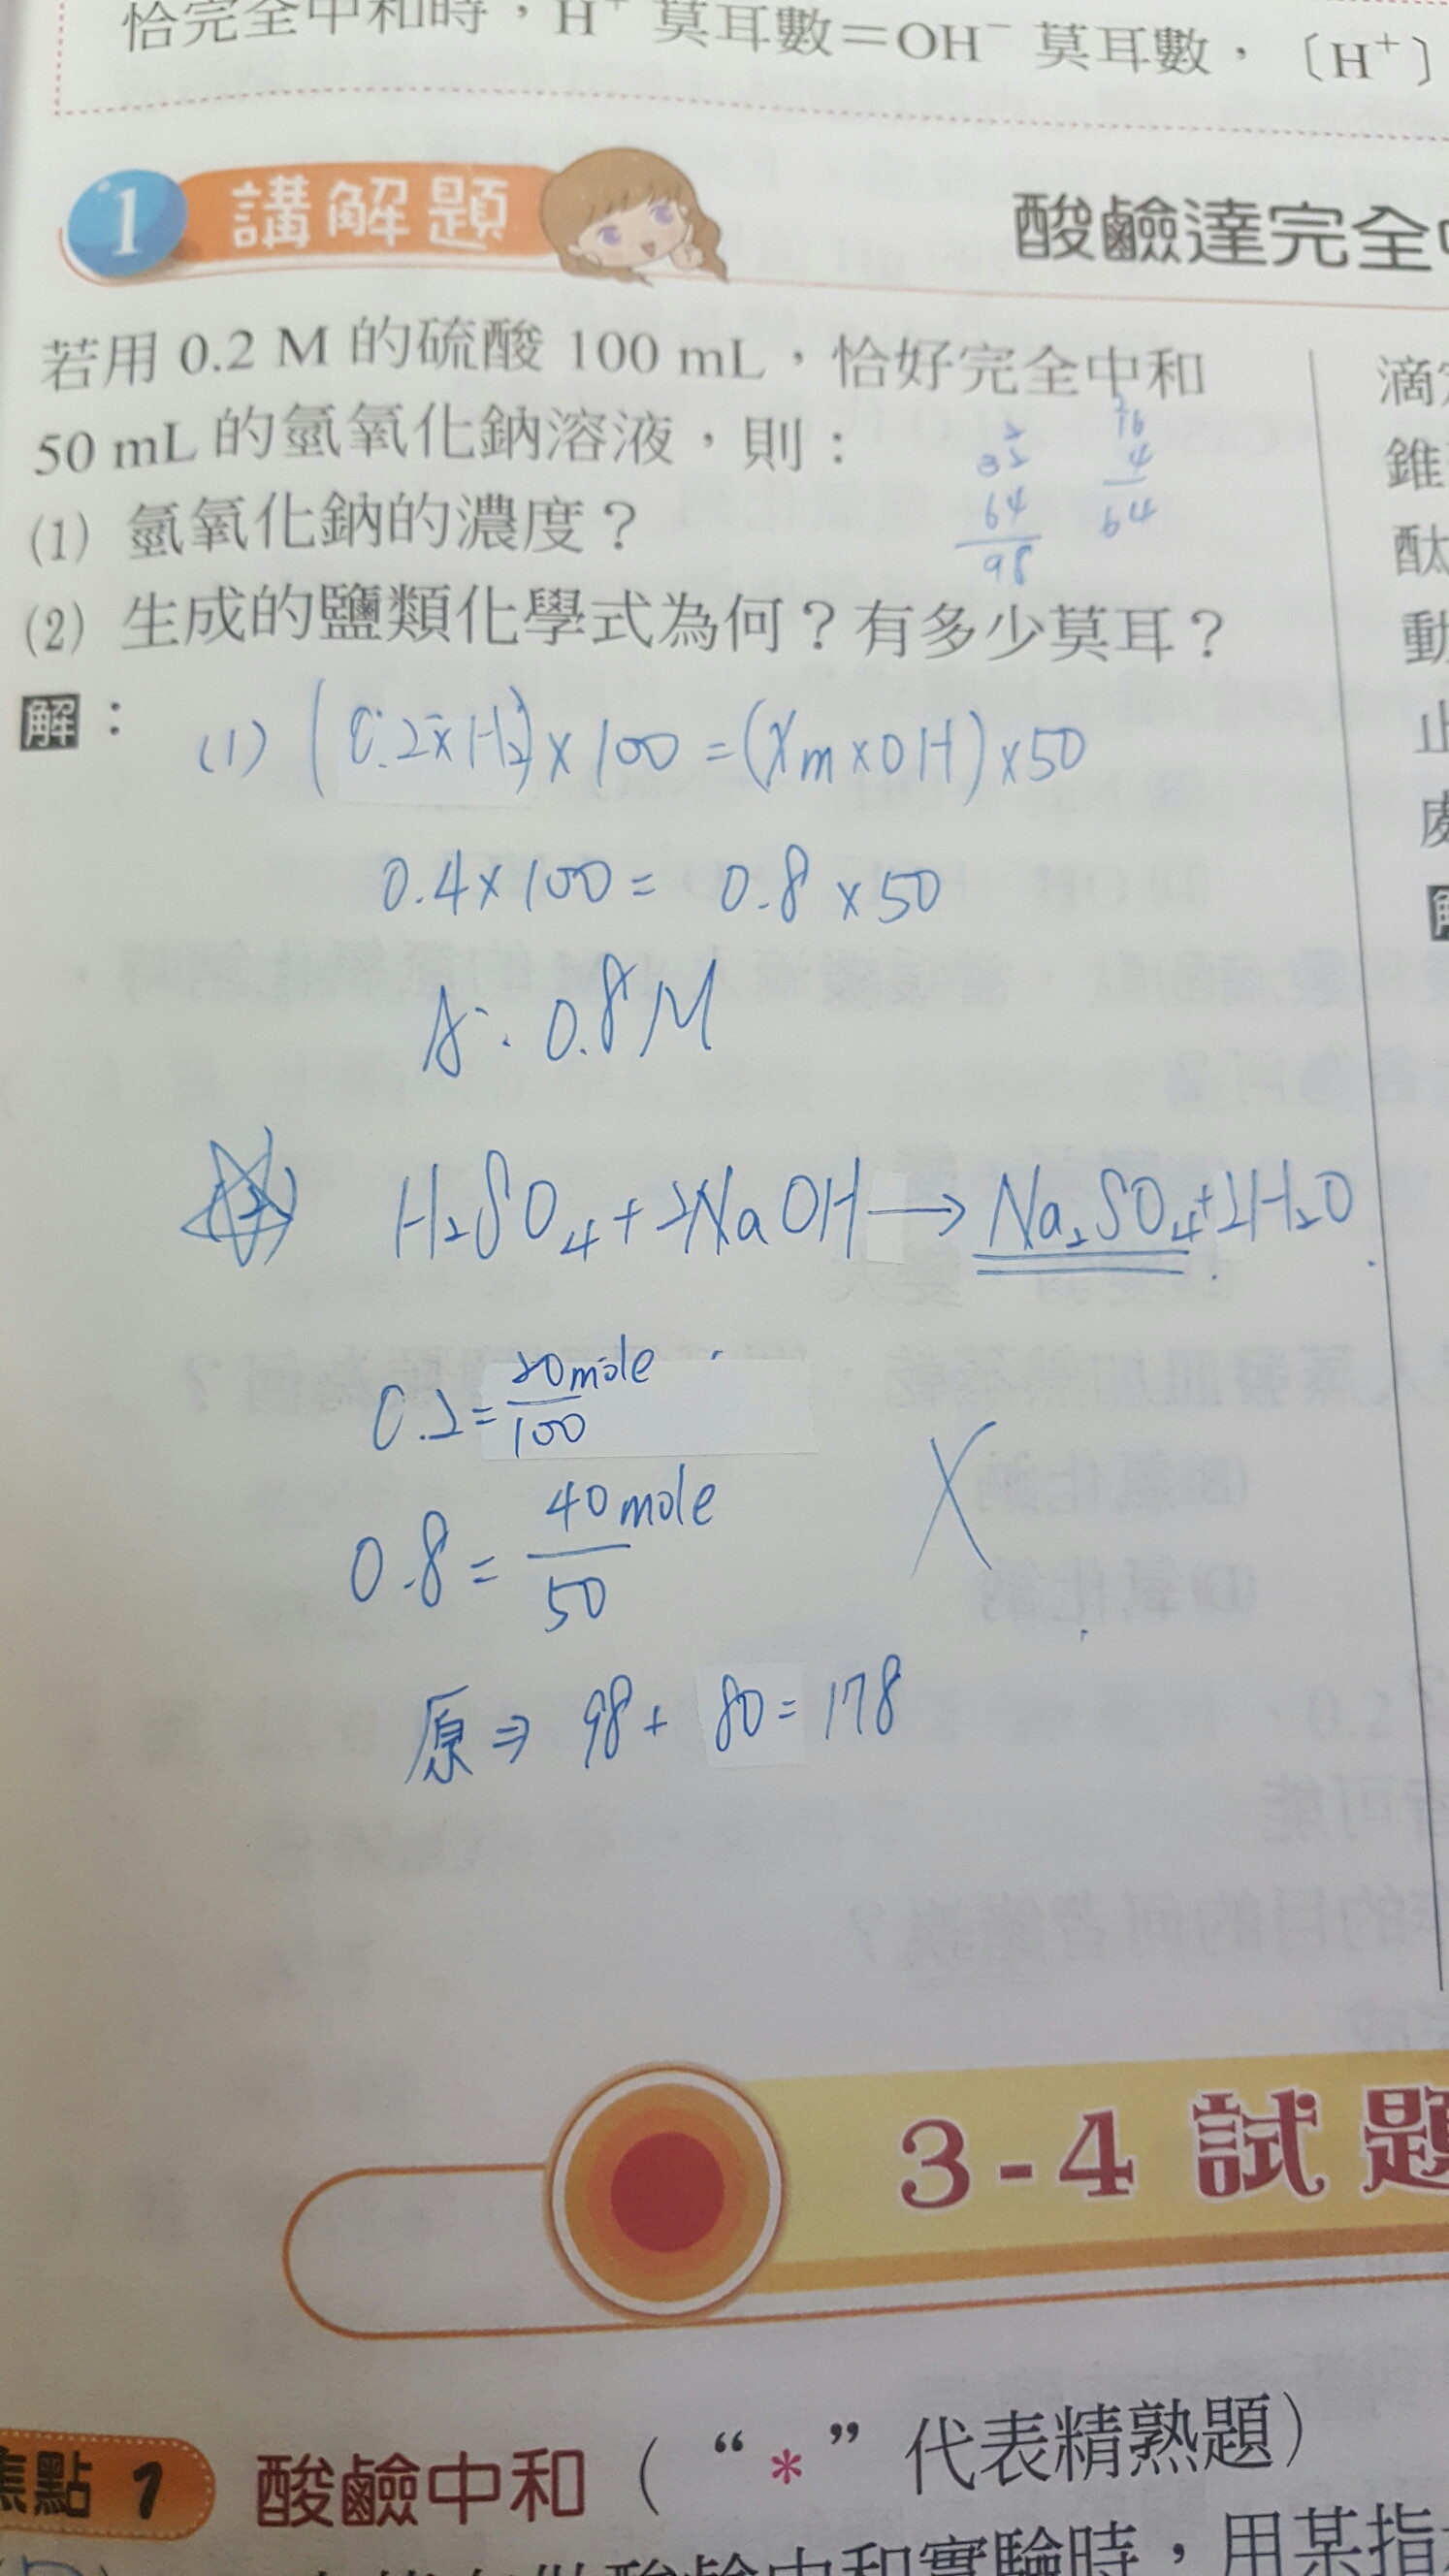 恰完全中和時，H⁺ 莫耳數＝OH⁻ 莫耳數，〔H⁺〕
1 講解題
酸鹼達完全
若用 0.2 M 的硫酸 100 mL，恰好完全中和
50 mL 的氫氧化鈉溶液，則：
(1) 氫氧化鈉的濃度？
(2) 生成的鹽類化學式為何？有多少莫耳？
32
64
98
16
4
64
解：
(1) (0.2×H₂)×100=(Xm×OH)×50
0.4×100= 0.8×50
A: 0.8M
(2) H₂SO₄+2NaOH→Na₂SO₄+2H₂O
0.2=20mole/100
0.8=40mole/50
原⇒ 98+80=178
滴
錐
酞
動
止
3-4 試題
焦點 1 酸鹼中和（“*”代表精熟題）
酸鹼中和實驗時，用某指